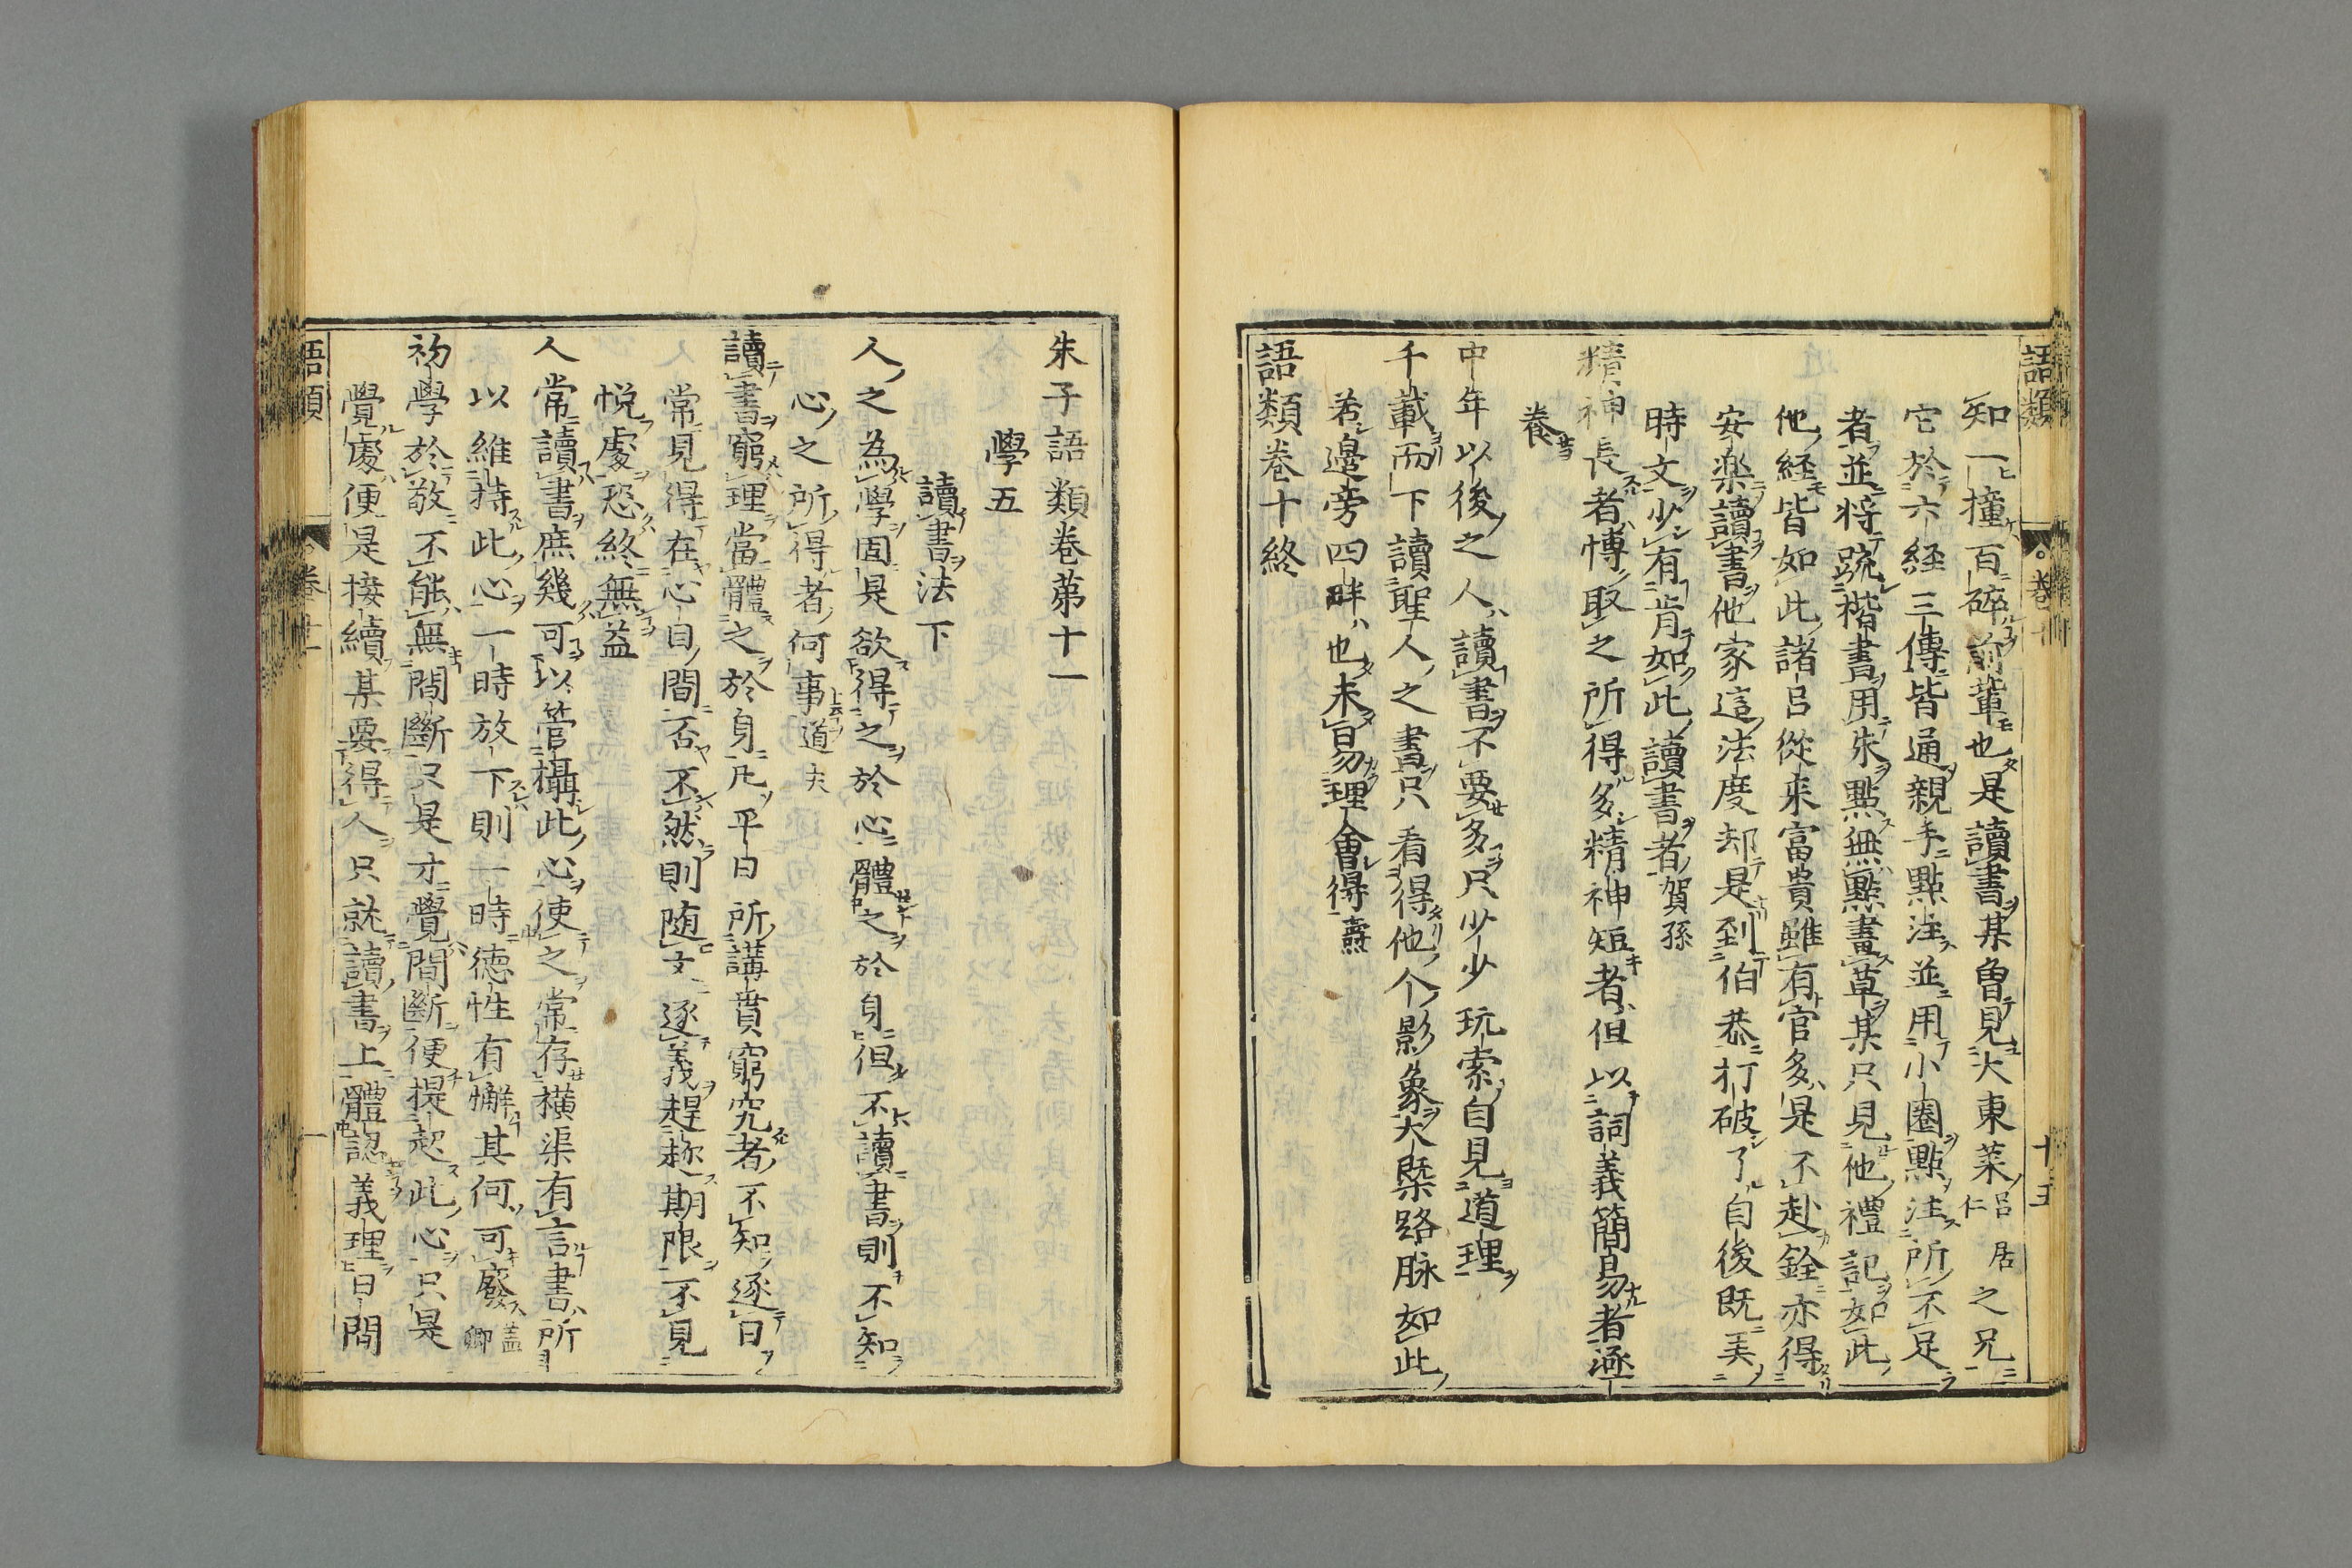 語類 卷十 十五
知一撞百碎前輩也是讀書某曾見大東萊呂居仁之兄
它於六経三傳皆通親手點注並用小圈點注所不足
者並将䟽楷書用朱點無點畫草某只見他禮記如此
他経皆如此諸呂從来富貴雖有官多是不赴銓亦得
安楽讀書他家這法度却是到伯恭打破了自後既弄
時文少有肯如此讀書者賀孫
精神長者博取之所得多精神短者但以詞義簡易者涵
養
中年以後之人讀書不要多只少少玩索自見道理
千載而下讀聖人之書只看得他个影象大槩路脉如此
若邊旁四畔也未易理會得燾
語類卷十終
朱子語類卷第十一
學五
讀書法下
人之為學固是欲得之於心體之於身但不讀書則不知
心之所得者何事道夫
讀書窮理當體之於身凡平日所講貫窮究者不知逐日
常見得在心目間否不然則随文逐義趕趂期限不見
悦處恐終無益
人常讀書庶幾可以管攝此心使之常存横渠有言書所
以維持此心一時放下則一時徳性有懈其何可廢蓋卿
初學於敬不能無間斷只是才覺間斷便提起此心只是
覺處便是接續某要得人只就讀書上體認義理日間
語類 卷十一 一